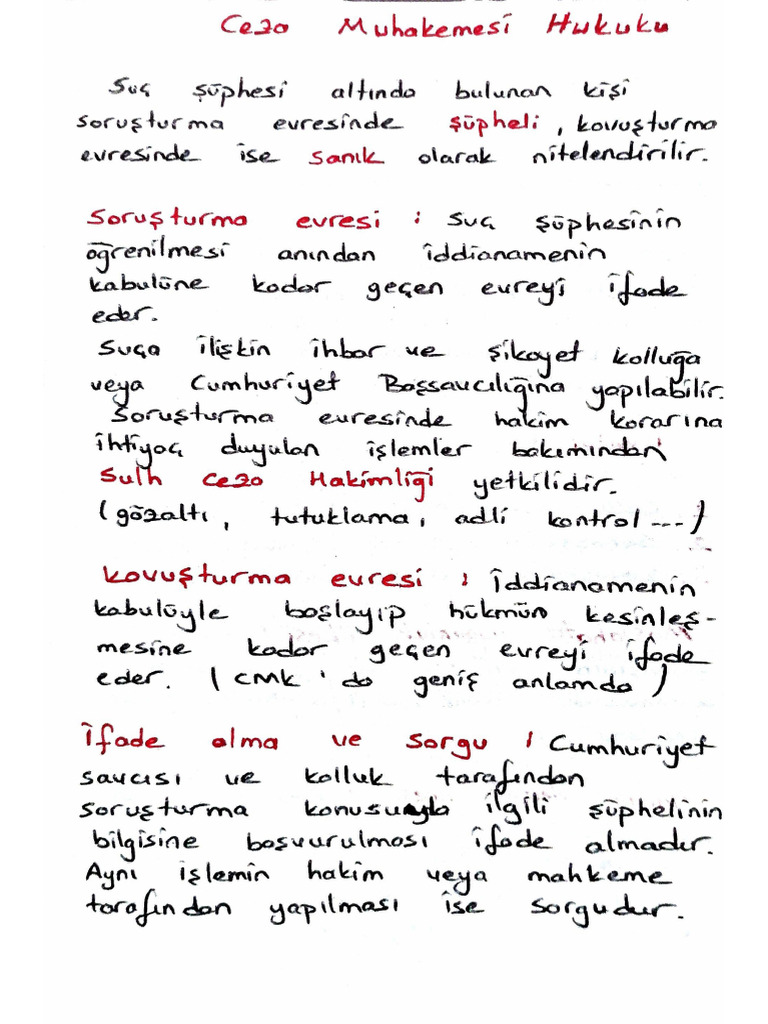 Ceza Muhakemesi Hukuku
Suç şüphesi altında bulunan kişi
soruşturma evresinde şüpheli, kovuşturma
evresinde ise sanık olarak nitelendirilir.
Soruşturma evresi : Suç şüphesinin
öğrenilmesi anından iddianamenin
kabulüne kadar geçen evreyi ifade
eder.
Suça ilişkin ihbar ve şikayet kolluğa
veya Cumhuriyet Başsavcılığına yapılabilir.
Soruşturma evresinde hakim kararına
ihtiyaç duyulan işlemler bakımından
Sulh Ceza Hakimliği yetkilidir.
(gözaltı, tutuklama, adli kontrol ...)
Kovuşturma evresi : İddianamenin
kabulüyle başlayıp hükmün kesinleş-
mesine kadar geçen evreyi ifade
eder. (CMK'da geniş anlamda)
İfade alma ve sorgu : Cumhuriyet
savcısı ve kolluk tarafından
soruşturma konusuyla ilgili şüphelinin
bilgisine başvurulması ifade almadır.
Aynı işlemin hakim veya mahkeme
tarafından yapılması ise sorgudur.